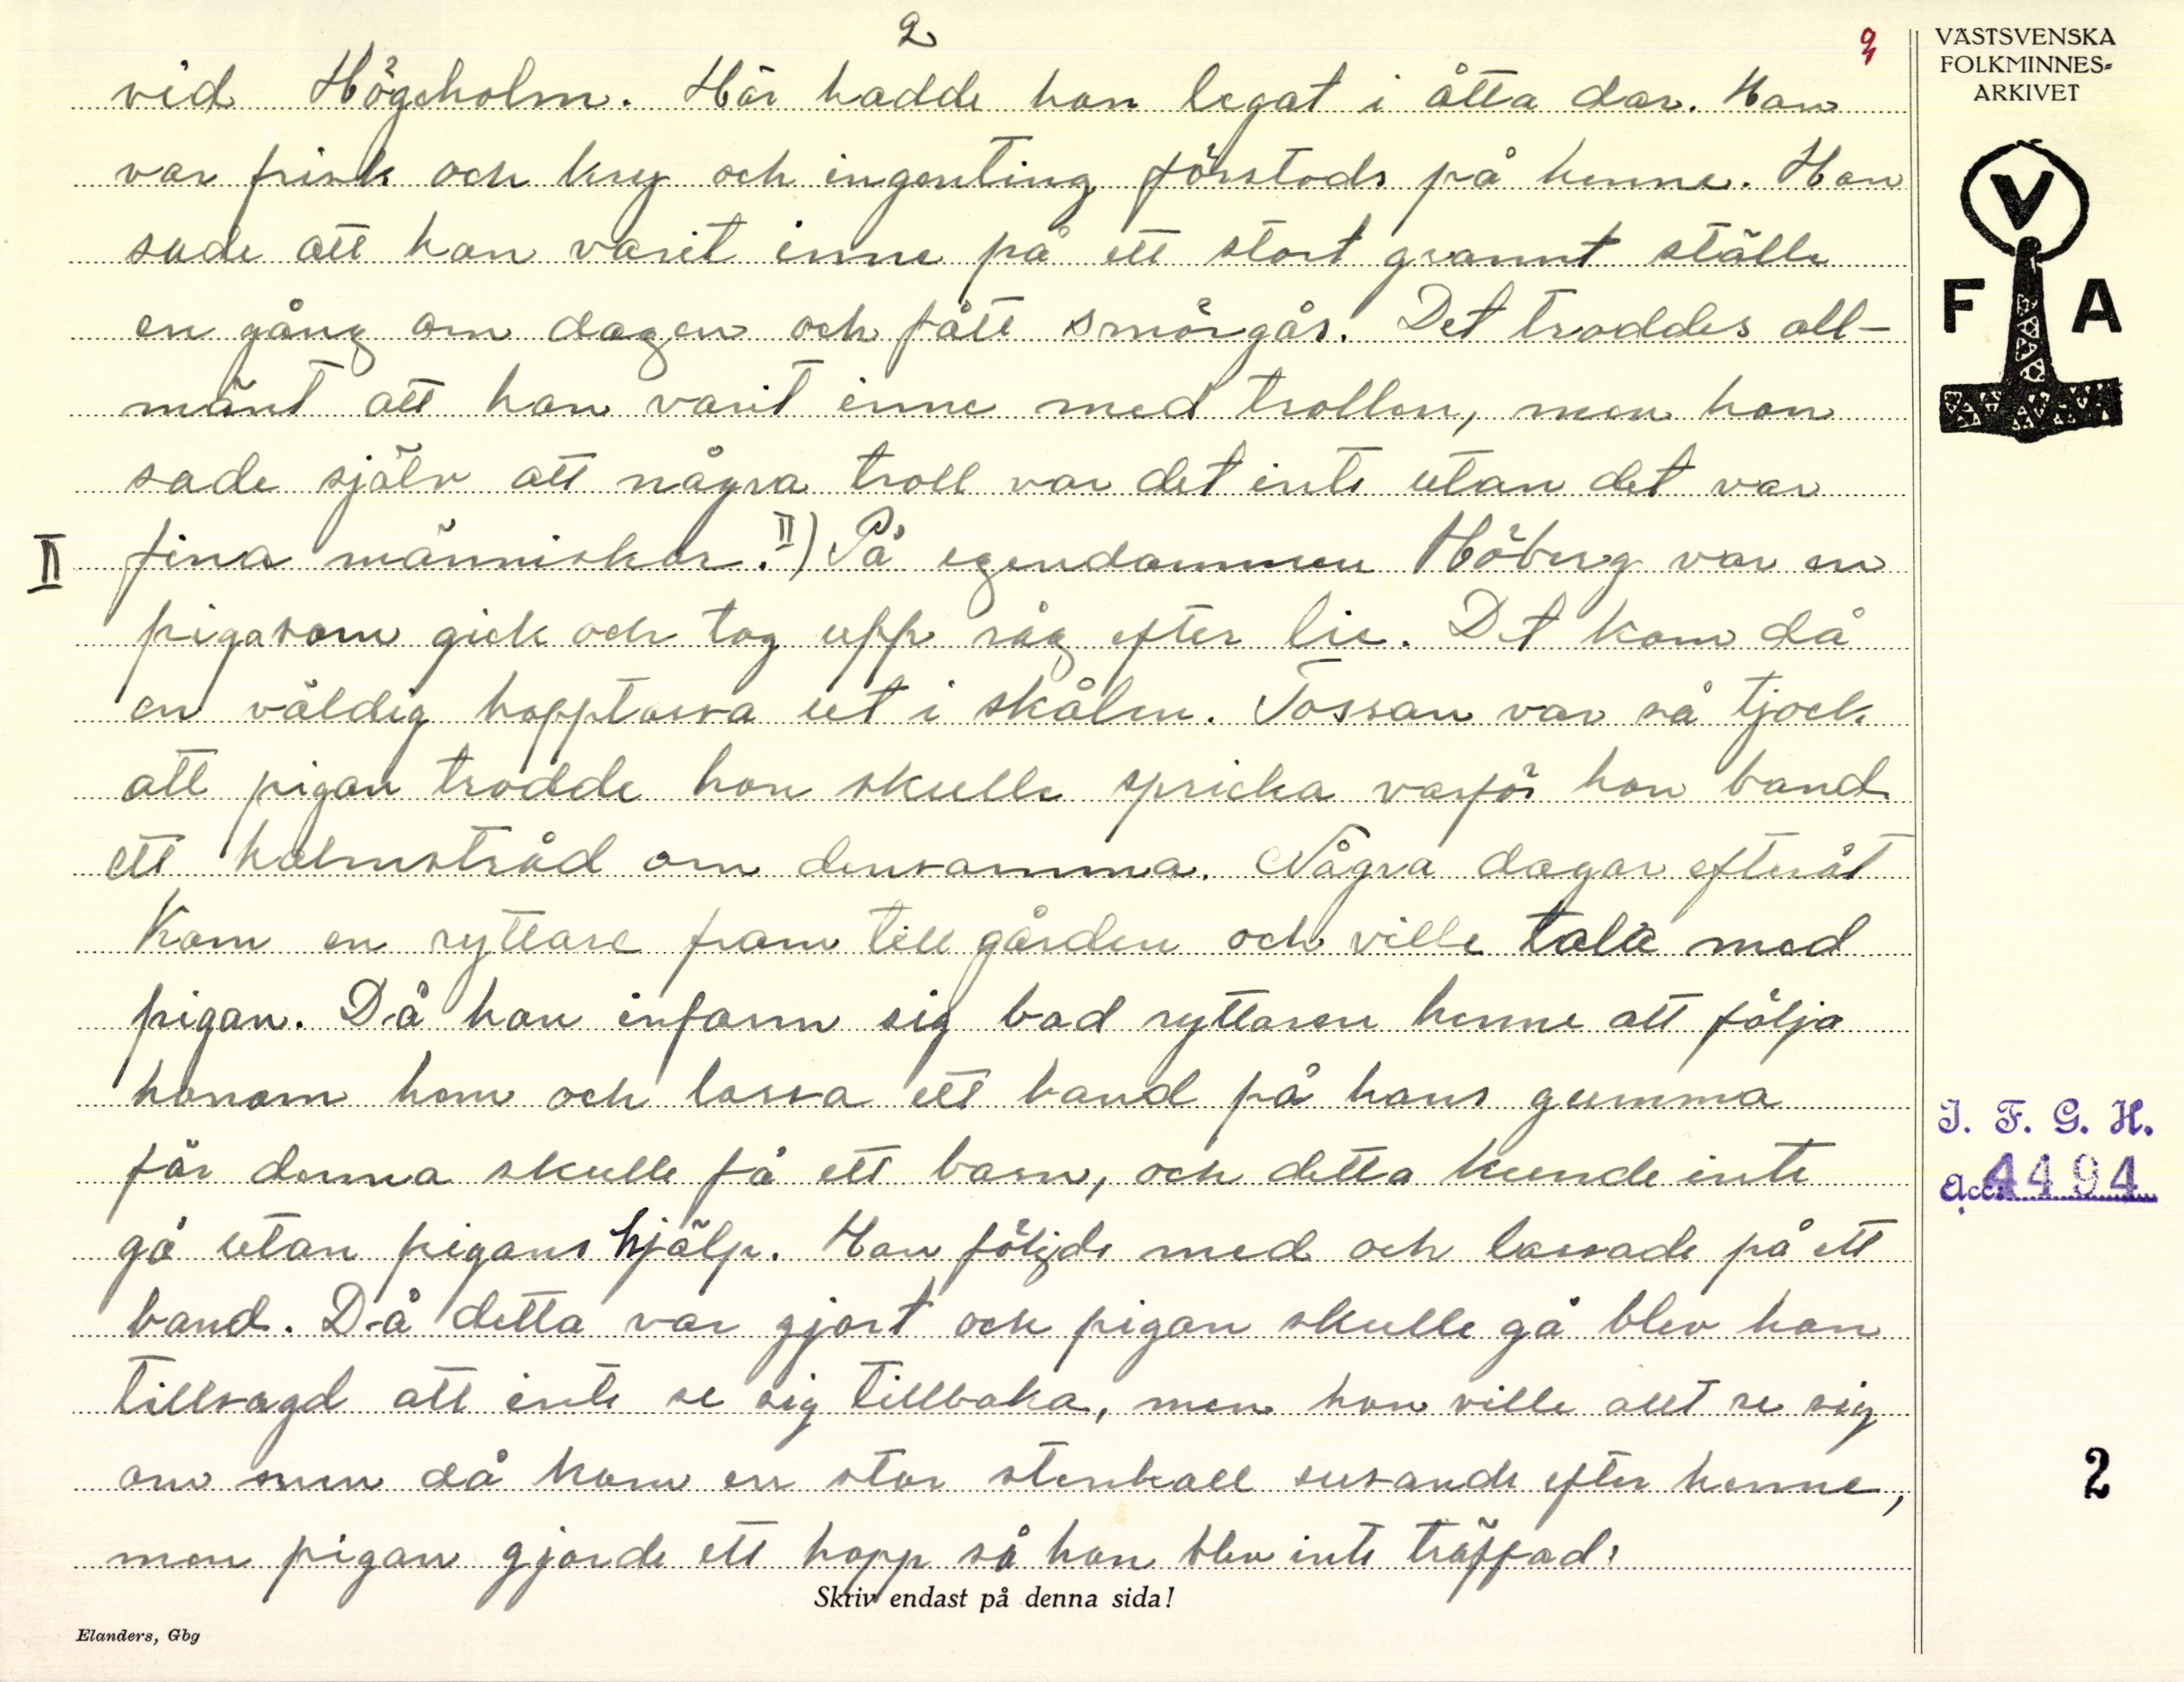 2
9
VÄSTSVENSKA
FOLKMINNES-
ARKIVET
V
F A
vid Högeholm. Här hadde hon legat i åtta dar. Hon
var frisk och kry och ingenting förstods på henne. Hon
sade att hon varit inne på ett stort grannt ställe
en gång om dagen och fått smörgås. Det troddes all-
mänt att hon varit inne med trollen, men hon
sade själv att några troll var det inte utan det var
II fina människor. II) På egendommen Höberg var en
piga som gick och tog upp råg efter lie. Det kom då
en väldig hopptossa ut i skålen. Tossan var så tjock
att pigan trodde hon skulle spricka varför hon band
ett halmstråd om densamma. Några dagar efteråt
kom en ryttare fram till gården och ville tala med
pigan. Då hon infann sig bad ryttaren henne att följa
honom hem och lossa ett band på hans gumma
för denna skulle få ett barn, och detta kunde inte
gå utan pigans hjälp. Hon följde med och lossade på ett
band. Då detta var gjort och pigan skulle gå blev hon
tillsagd att inte se sig tillbaka, men hon ville allt se sig
om men då kom en stor stenkall susande efter henne,
men pigan gjorde ett hopp så hon blev inte träffad.
I. F. G. H.
Acc. 4494
2
Skriv endast på denna sida!
Elanders, Gbg